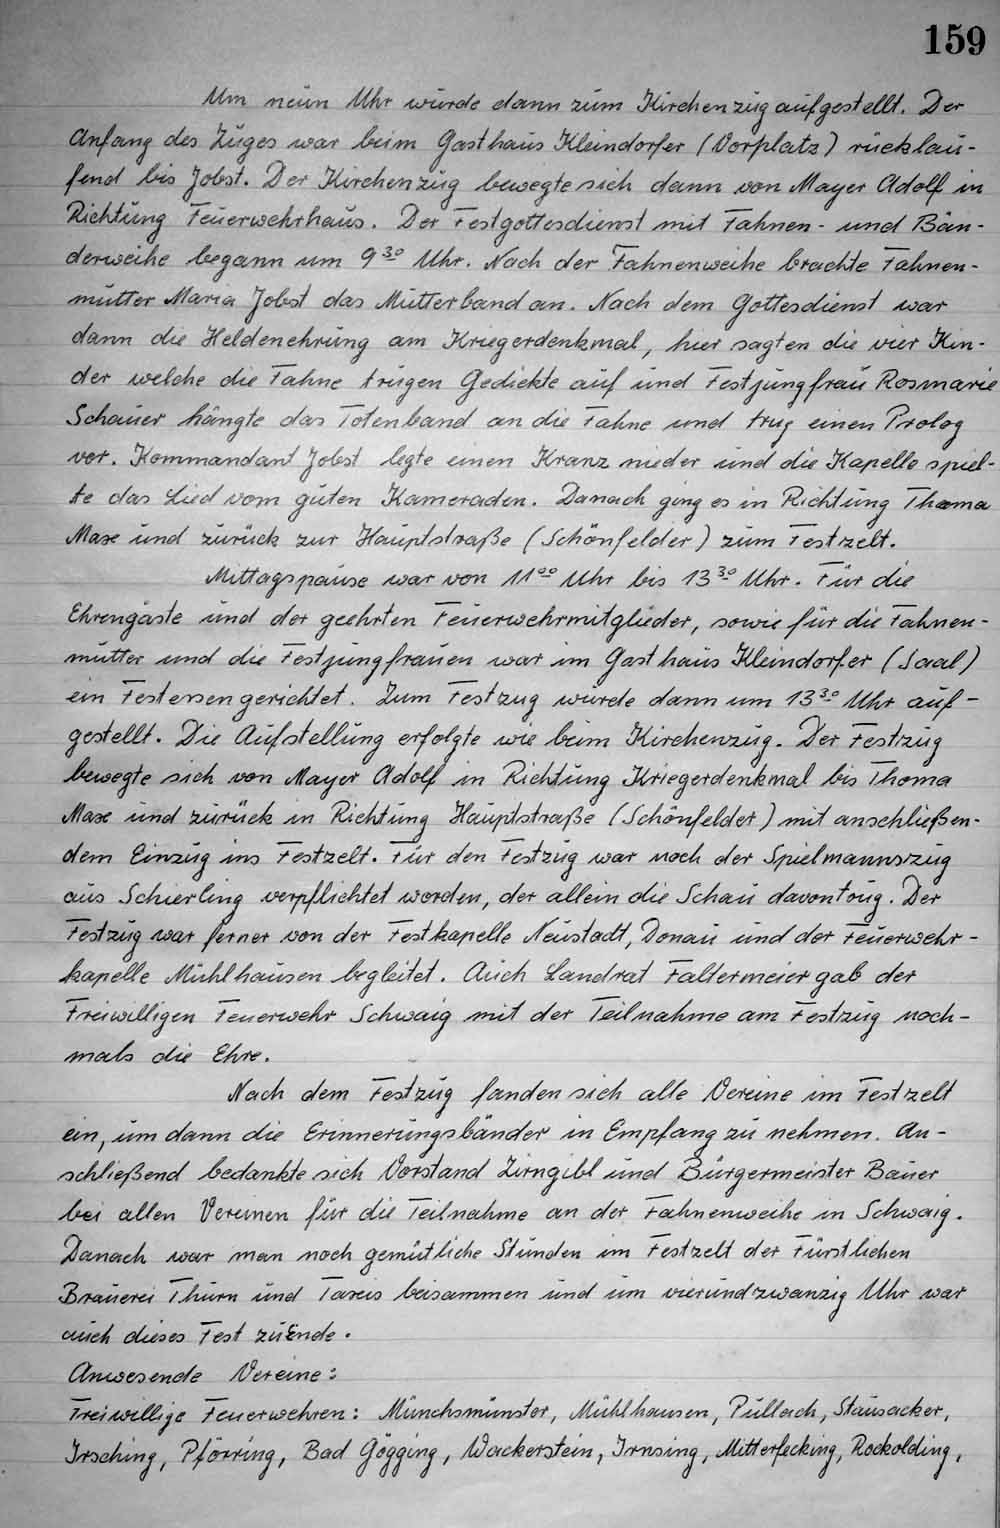 159
Um neun Uhr wurde dann zum Kirchenzug aufgestellt. Der
Anfang des Zuges war beim Gasthaus Kleindorfer (Vorplatz) rücklau-
fend bis Jobst. Der Kirchenzug bewegte sich dann von Mayer Adolf in
Richtung Feuerwehrhaus. Der Festgottesdienst mit Fahnen- und Bän-
derweihe begann um 9 30 Uhr. Nach der Fahnenweihe brachte Fahnen-
mutter Maria Jobst das Mutterband an. Nach dem Gottesdienst war
dann die Heldenehrung am Kriegerdenkmal, hier sagten die vier Kin-
der welche die Fahne trugen Gedichte auf und Festjungfrau Rosmarie
Schauer hängte das Totenband an die Fahne und trug einen Prolog
vor. Kommandant Jobst legte einen Kranz nieder und die Kapelle spiel-
te das Lied vom guten Kameraden. Danach ging es in Richtung Thoma
Max und zurück zur Hauptstraße (Schönfelder) zum Festzelt.
Mittagspause war von 11 00 Uhr bis 13 30 Uhr. Für die
Ehrengäste und der geehrten Feuerwehrmitglieder, sowie für die Fahnen-
mutter und die Festjungfrauen war im Gasthaus Kleindorfer (Saal)
ein Festessen gerichtet. Zum Festzug wurde dann um 13 30 Uhr auf-
gestellt. Die Aufstellung erfolgte wie beim Kirchenzug. Der Festzug
bewegte sich von Mayer Adolf in Richtung Kriegerdenkmal bis Thoma
Max und zurück in Richtung Hauptstraße (Schönfelder) mit anschließen-
dem Einzug ins Festzelt. Für den Festzug war noch der Spielmannszug
aus Schierling verpflichtet worden, der allein die Schau davontrug. Der
Festzug war ferner von der Festkapelle Neustadt, Donau und der Feuerwehr-
kapelle Mühlhausen begleitet. Auch Landrat Faltermeier gab der
Freiwilligen Feuerwehr Schwaig mit der Teilnahme am Festzug noch-
mals die Ehre.
Nach dem Festzug fanden sich alle Vereine im Festzelt
ein, um dann die Erinnerungsbänder in Empfang zu nehmen. An-
schließend bedankte sich Vorstand Zirngibl und Bürgermeister Bauer
bei allen Vereinen für die Teilnahme an der Fahnenweihe in Schwaig.
Danach war man noch gemütliche Stunden im Festzelt der Fürstlichen
Brauerei Thurn und Taxis beisammen und um vierundzwanzig Uhr war
auch dieses Fest zu Ende.
Anwesende Vereine:
Freiwillige Feuerwehren: Münchsmünster, Mühlhausen, Pullach, Stausacker,
Irsching, Pförring, Bad Gögging, Wackerstein, Irnsing, Mitterfecking, Rockolding,